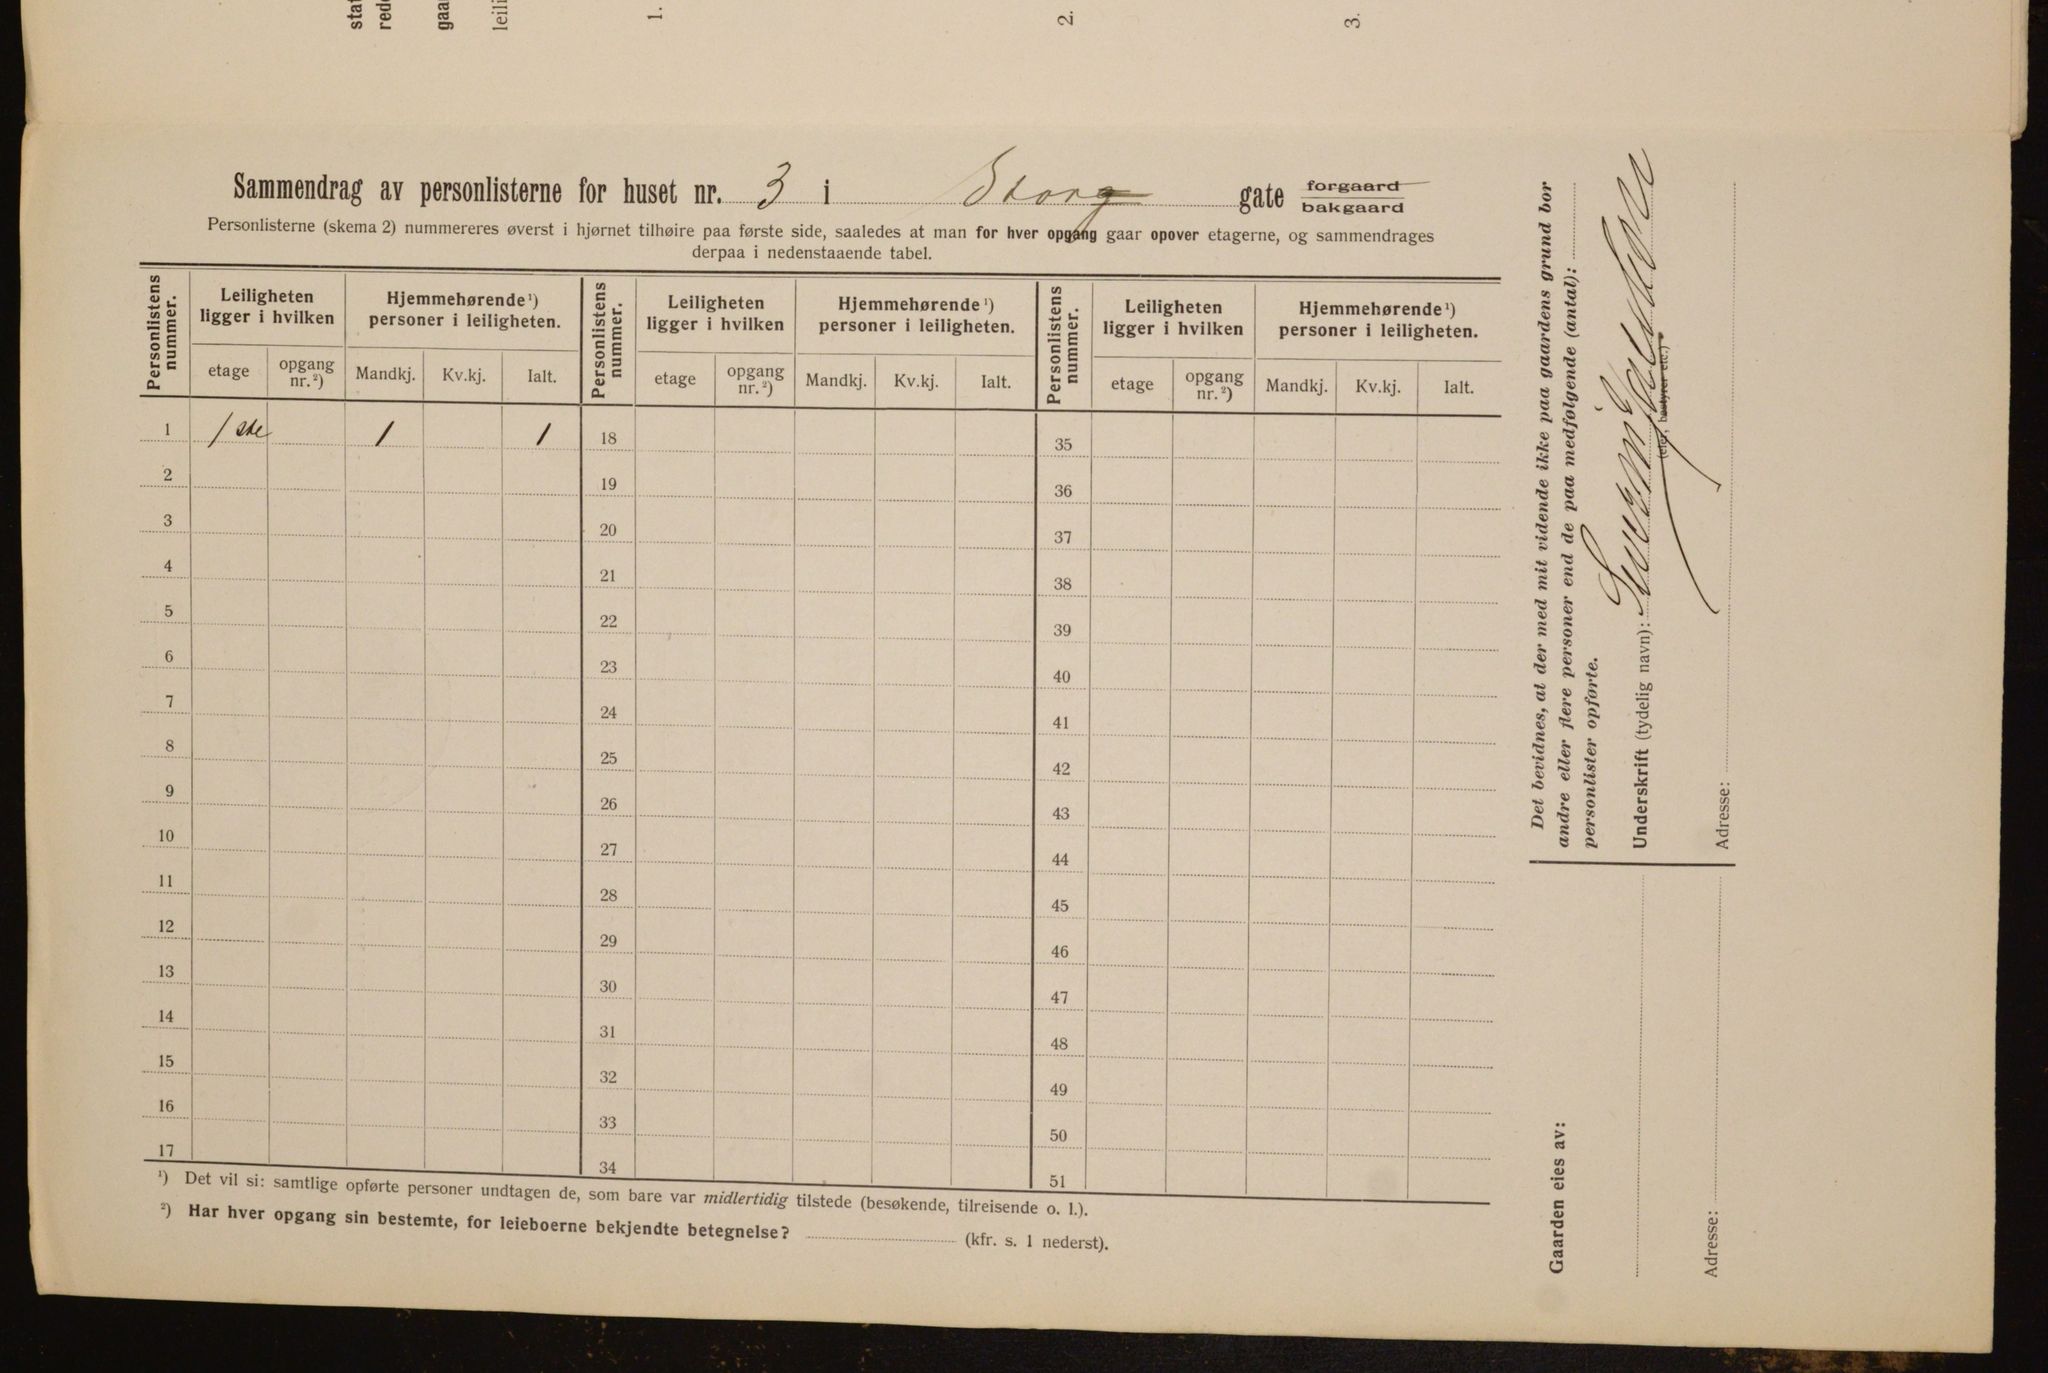 stat
rede
gaa
leili
1.
2.
3.
Sammendrag av personlisterne for huset nr. 3 i Storg gate forgaard bakgaard
Personlisterne (skema 2) nummereres øverst i hjørnet tilhøire paa første side, saaledes at man for hver opgang gaar opover etagerne, og sammendrages
derpaa i nedenstaaende tabel.
Personlistens nummer. Leiligheten ligger i hvilken Hjemmehørende¹) personer i leiligheten. Personlistens nummer. Leiligheten ligger i hvilken Hjemmehørende¹) personer i leiligheten. Personlistens nummer. Leiligheten ligger i hvilken Hjemmehørende¹) personer i leiligheten.
etage opgang nr.²) Mandkj. Kv.kj. Ialt. etage opgang nr.²) Mandkj. Kv.kj. Ialt. etage opgang nr.²) Mandkj. Kv.kj. Ialt.
1 1ste 1 1 18 35
2 19 36
3 20 37
4 21 38
5 22 39
6 23 40
7 24 41
8 25 42
9 26 43
10 27 44
11 28 45
12 29 46
13 30 47
14 31 48
15 32 49
16 33 50
17 34 51
¹) Det vil si: samtlige opførte personer undtagen de, som bare var midlertidig tilstede (besøkende, tilreisende o. l.).
²) Har hver opgang sin bestemte, for leieboerne bekjendte betegnelse? (kfr. s. 1 nederst).
Det bevidnes, at der med mit vidende ikke paa gaardens grund bor
andre eller flere personer end de paa medfølgende (antal):
personlister opførte.
Underskrift (tydelig navn):
(eier, bestyrer etc.)
Adresse:
Gaarden eies av:
Adresse: